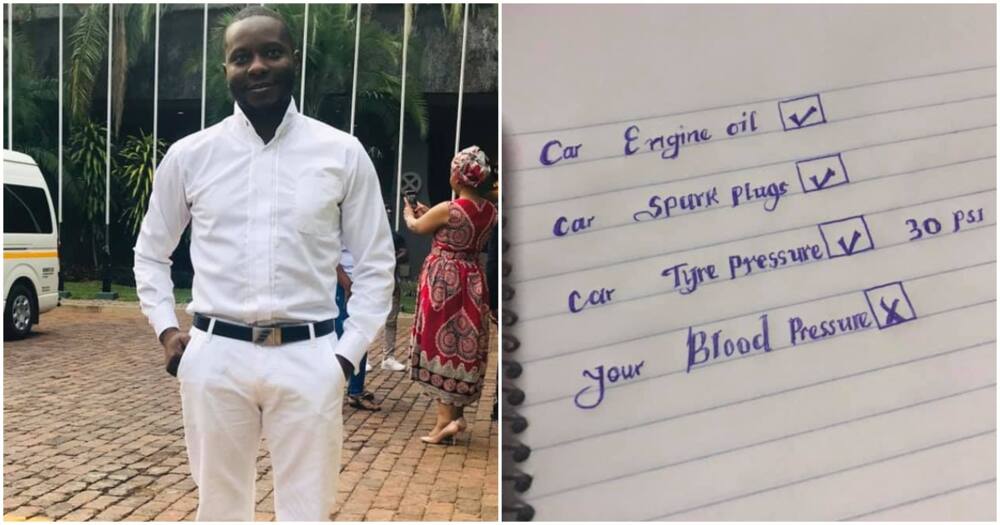 Car Engine oil
Car Spark Plugs
Car Tyre Pressure 30 PSI
Your Blood Pressure